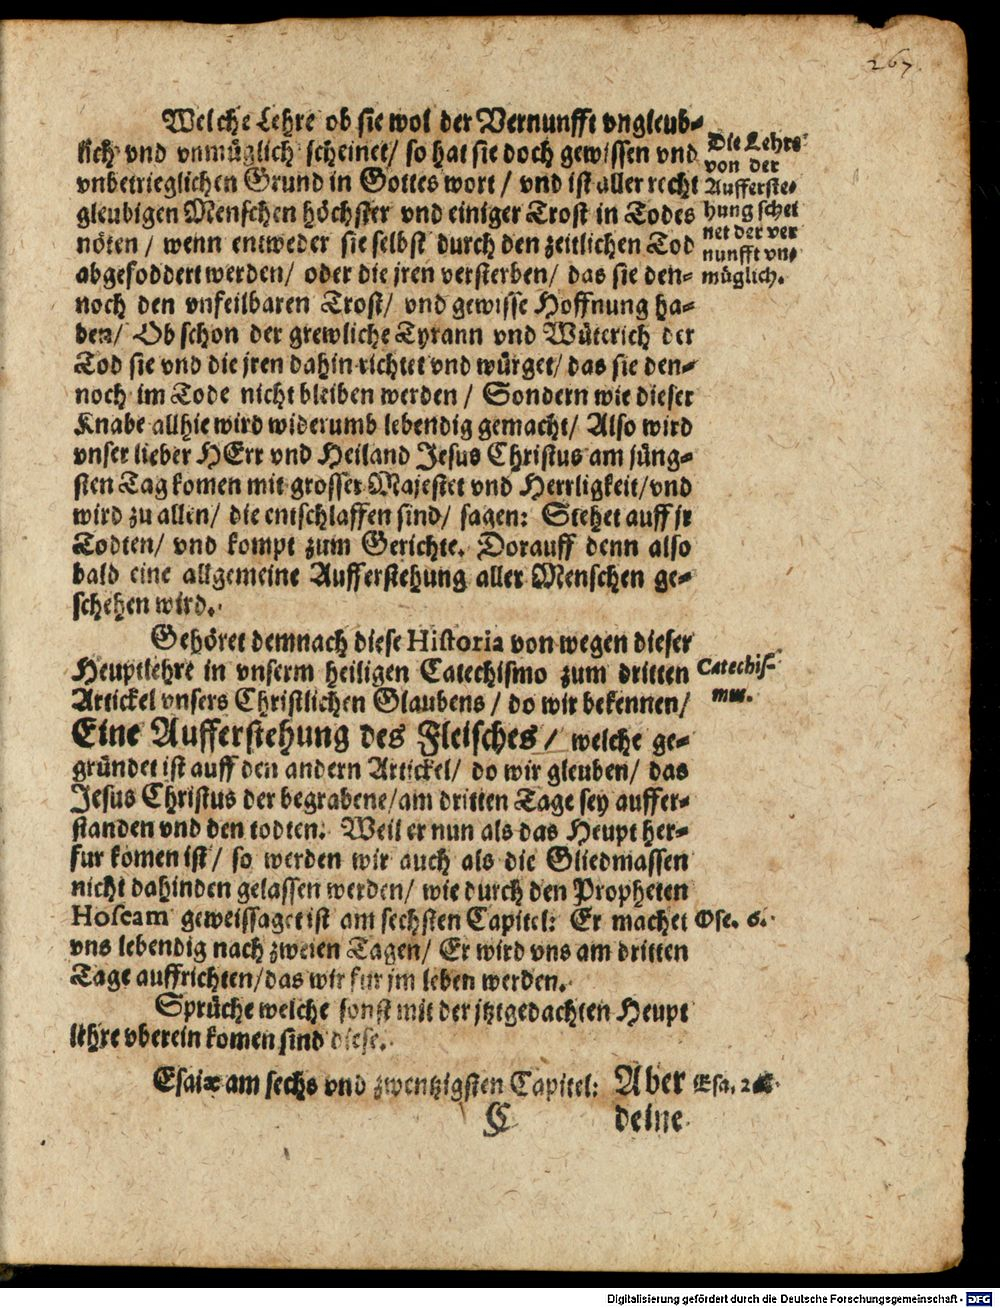 267.
Welche Lehre ob sie wol der Vernunfft vngleub-
lich vnd vnmüglich scheinet/ so hat sie doch gewissen vnd
vnbetrieglichen Grund in Gottes wort / vnd ist aller recht
gleubigen Menschen höchster vnd einiger Trost in Todes
nöten / wenn entweder sie selbst durch den zeitlichen Tod
abgefoddert werden/ oder die jren versterben/ das sie den-
noch den vnfeilbaren Trost/ vnd gewisse Hoffnung ha-
ben/ Ob schon der grewliche Tyrann vnd Wüterich der
Tod sie vnd die jren dahin richtet vnd würget/ das sie den-
noch im Tode nicht bleiben werden / Sondern wie dieser
Knabe allhie wird widerumb lebendig gemacht/ Also wird
vnser lieber HErr vnd Heiland Jesus Christus am jüng-
sten Tag komen mit grosser Majestet vnd Herrligkeit/vnd
wird zu allen/ die entschlaffen sind/ sagen: Stehet auff jr
Todten/ vnd kompt zum Gerichte. Dorauff denn also
bald eine allgemeine Aufferstehung aller Menschen ge-
schehen wird.
Die Lehre
von der
Aufferste-
hung schei
net der ver
nunfft vn-
müglich.
Gehöret demnach diese Historia von wegen dieser
Heuptlehre in vnserm heiligen Catechismo zum dritten
Artickel vnsers Christlichen Glaubens / do wir bekennen/
Eine Aufferstehung des Fleisches/ welche ge-
gründet ist auff den andern Artickel/ do wir gleuben/ das
Jesus Christus der begrabene/am dritten Tage sey auffer-
standen vnd den todten. Weil er nun als das Heupt her-
fur komen ist/ so werden wir auch als die Gliedmassen
nicht dahinden gelassen werden/ wie durch den Propheten
Hoseam geweissaget ist am sechsten Capitel: Er machet
vns lebendig nach zweien Tagen/ Er wird vns am dritten
Tage auffrichten/das wir fur jm leben werden.
Catechis-
mus.
Ose. 6.
Sprüche welche sonst mit der jtztgedachten Heupt
lehre vberein komen sind diese.
Esaiæ am sechs vnd zwentzigsten Capitel: Aber
Esa. 26.
C deine
Digitalisierung gefördert durch die Deutsche Forschungsgemeinschaft - DFG